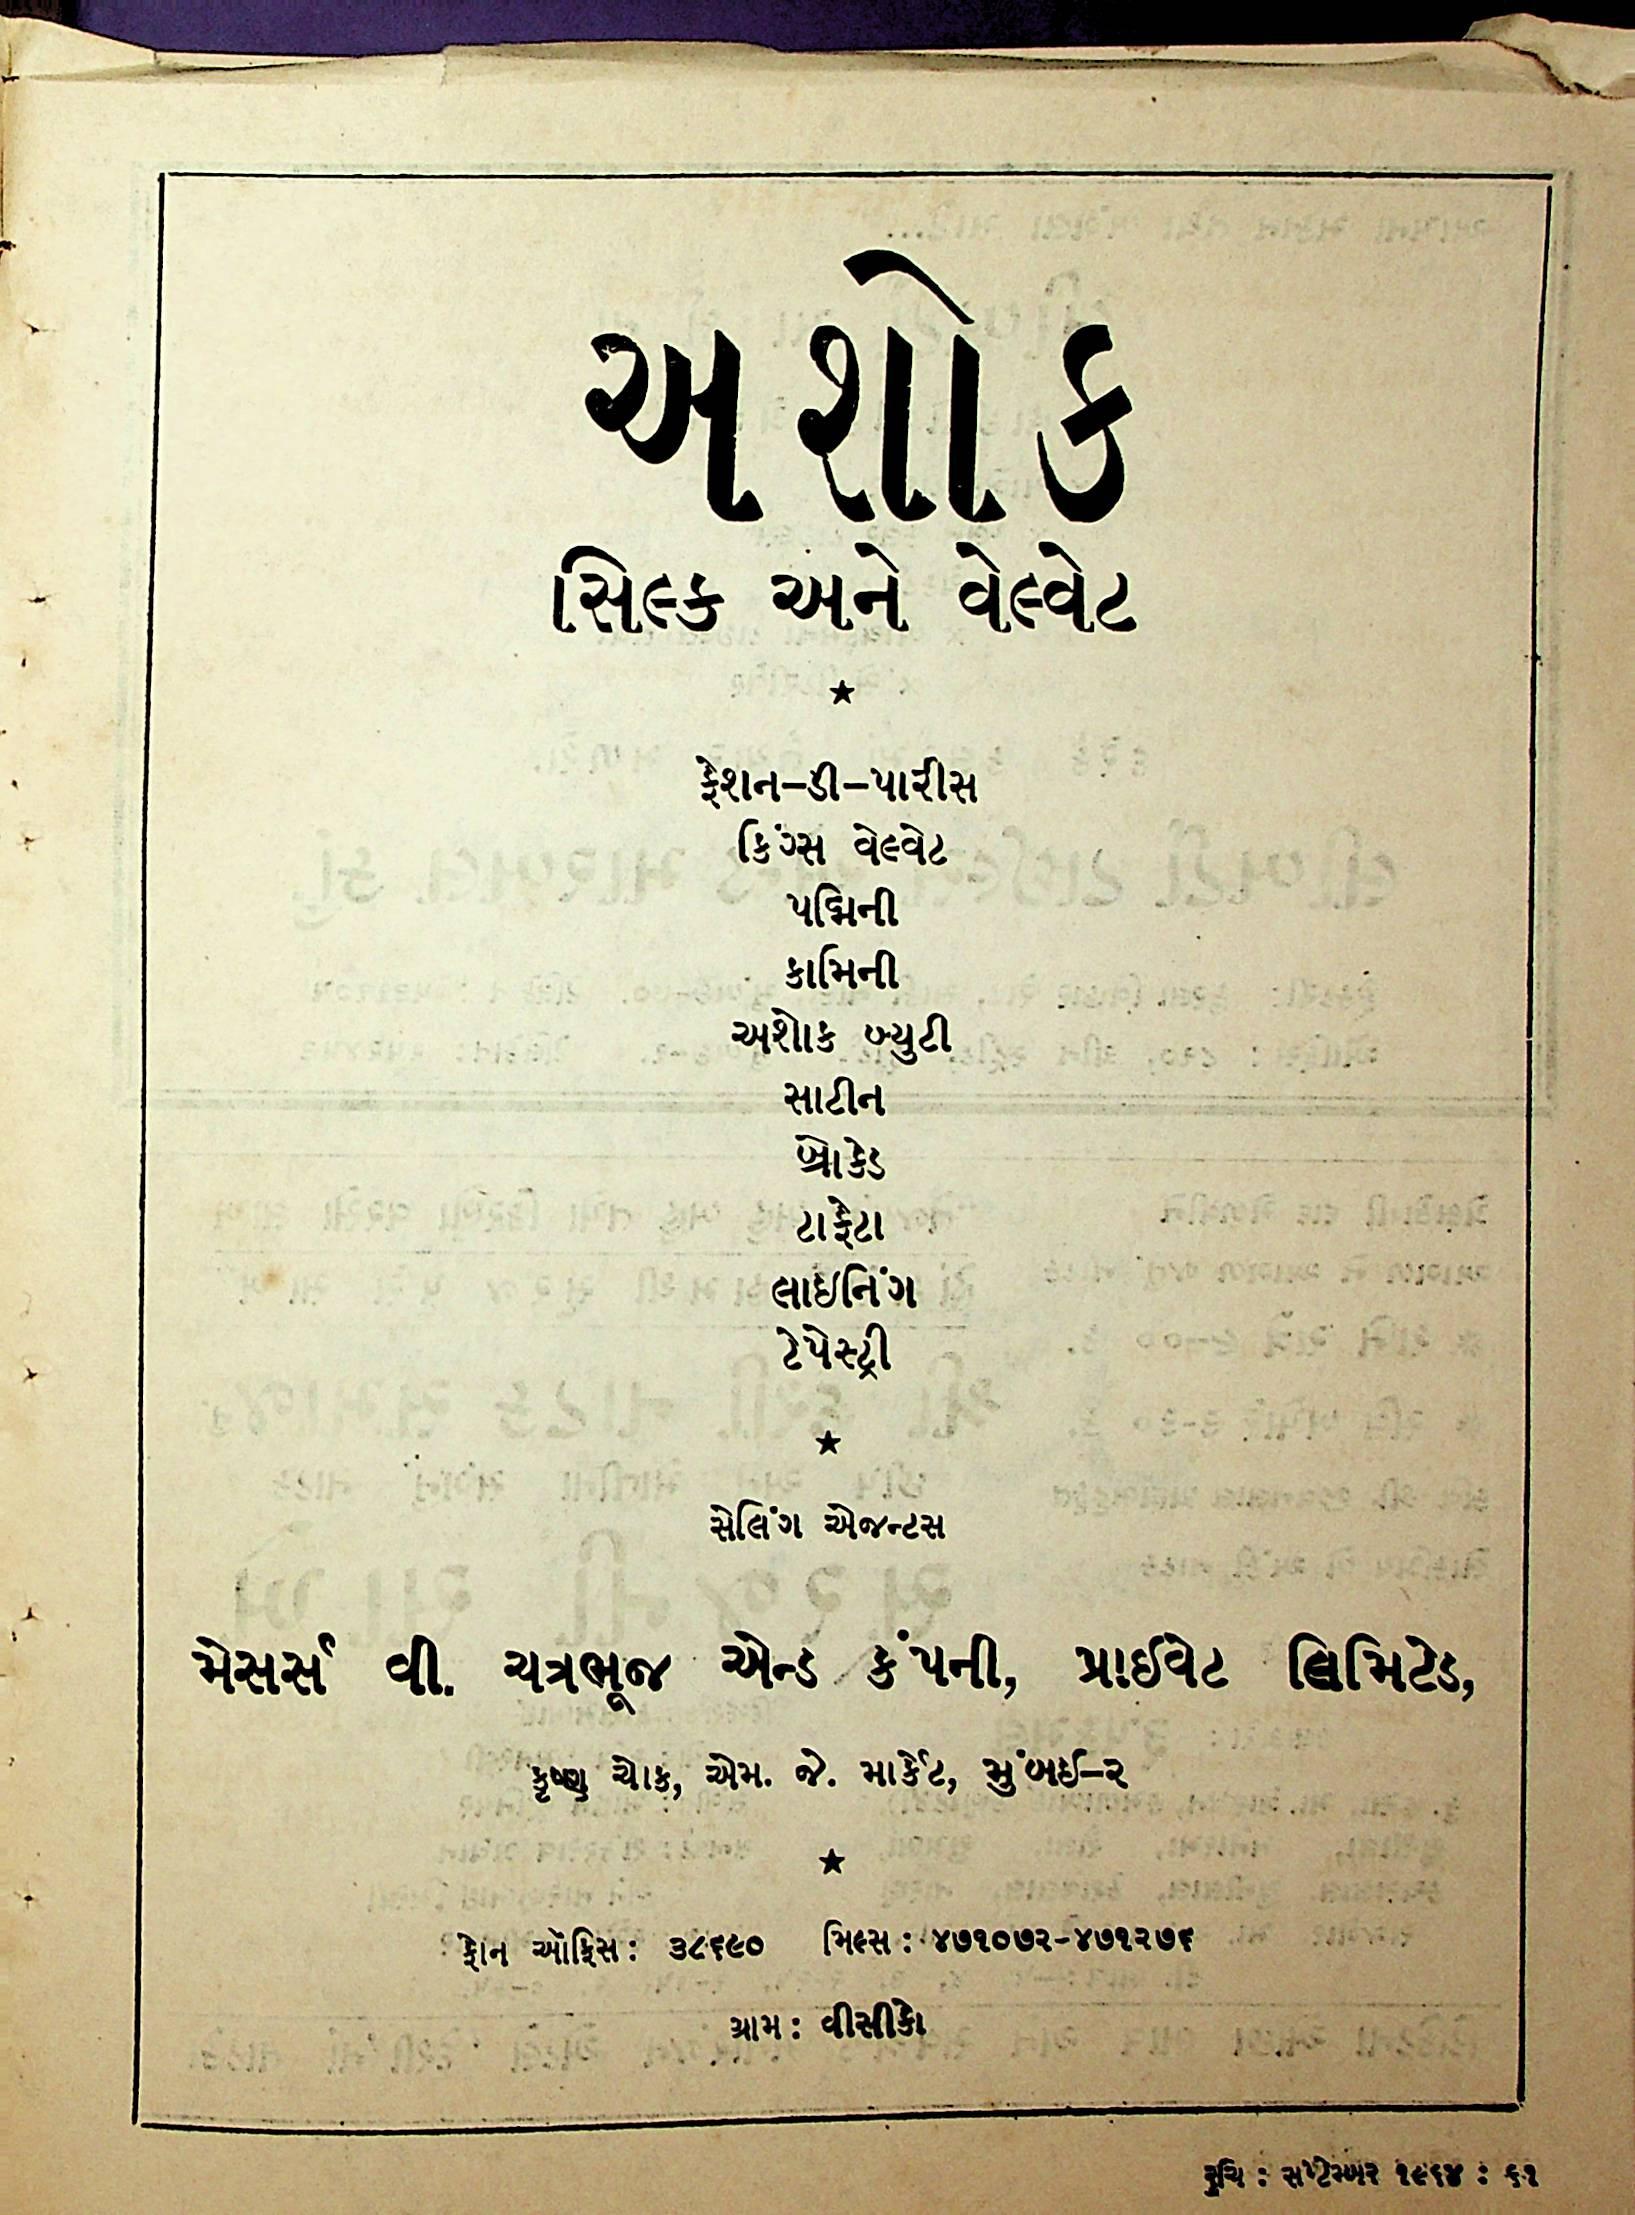 અશોક
સિલ્ક અને વેલ્વેટ
★
ફેશન-ડી-પારીસ
કિંગ્સ વેલ્વેટ
પદ્મિની
કામિની
અશોક બ્યુટી
સાટીન
બ્રોકેડ
ટાફેટા
લાઇનિંગ
ટેપેસ્ટ્રી
★
સેલિંગ એજન્ટસ
મેસર્સ વી. ચત્રભૂજ એન્ડ કંપની, પ્રાઈવેટ લિમિટેડ,
કૃષ્ણ ચોક, એમ. જે. માર્કેટ, મુંબઈ-૨
★
ફોન ઑફિસ: ૩૮૬૯૦ મિલ્સ: ૪૭૧૦૭૨-૪૭૧૨૭૬
ગ્રામ: વીસીકો
રુચિ : સપ્ટેમ્બર ૧૯૬૪ : ૬૧